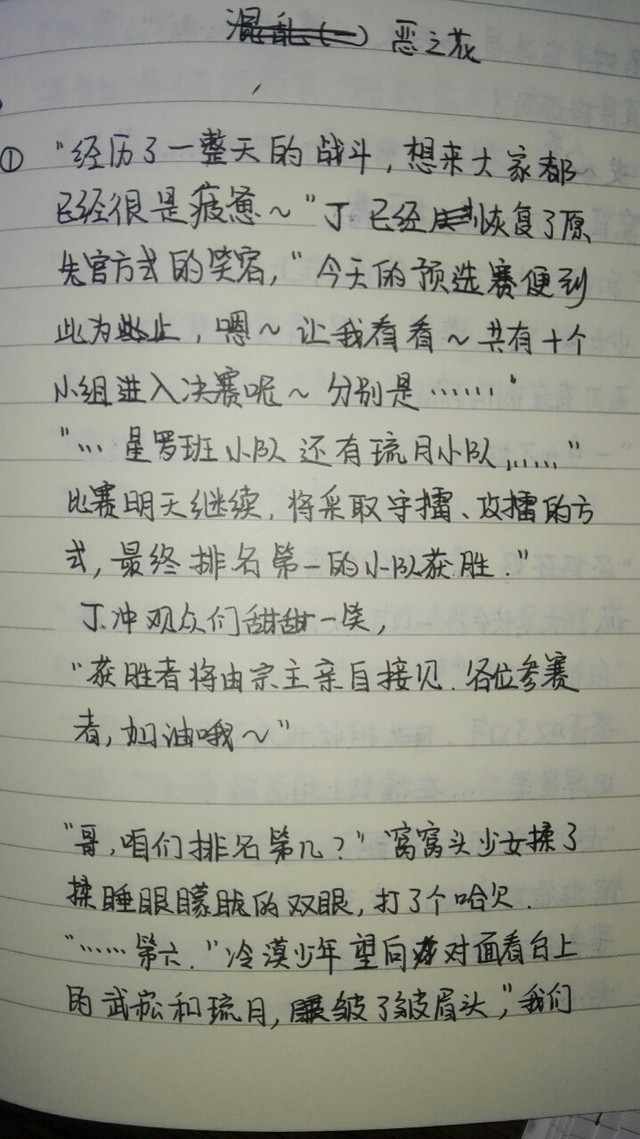 恶之花
① "经历了一整天的战斗,想来大家都
已经很是疲惫~"丁.已经恢复了原
先官方式的笑容,"今天的预选赛便到
此为止,嗯~让我看看~共有十个
小组进入决赛呢~分别是……"
"…星罗班小队还有琉月小队,……"
比赛明天继续,将采取守擂、攻擂的方
式,最终排名第一的小队获胜."
丁.冲观众们甜甜一笑,
"获胜者将由宗主亲自接见.各位参赛
者,加油哦~"
"哥,咱们排名第几?"窝窝头少女揉了
揉睡眼朦胧的双眼,打了个哈欠.
"……第六."冷漠少年望向对面看台上
的武崧和琉月,皱了皱眉头,"我们